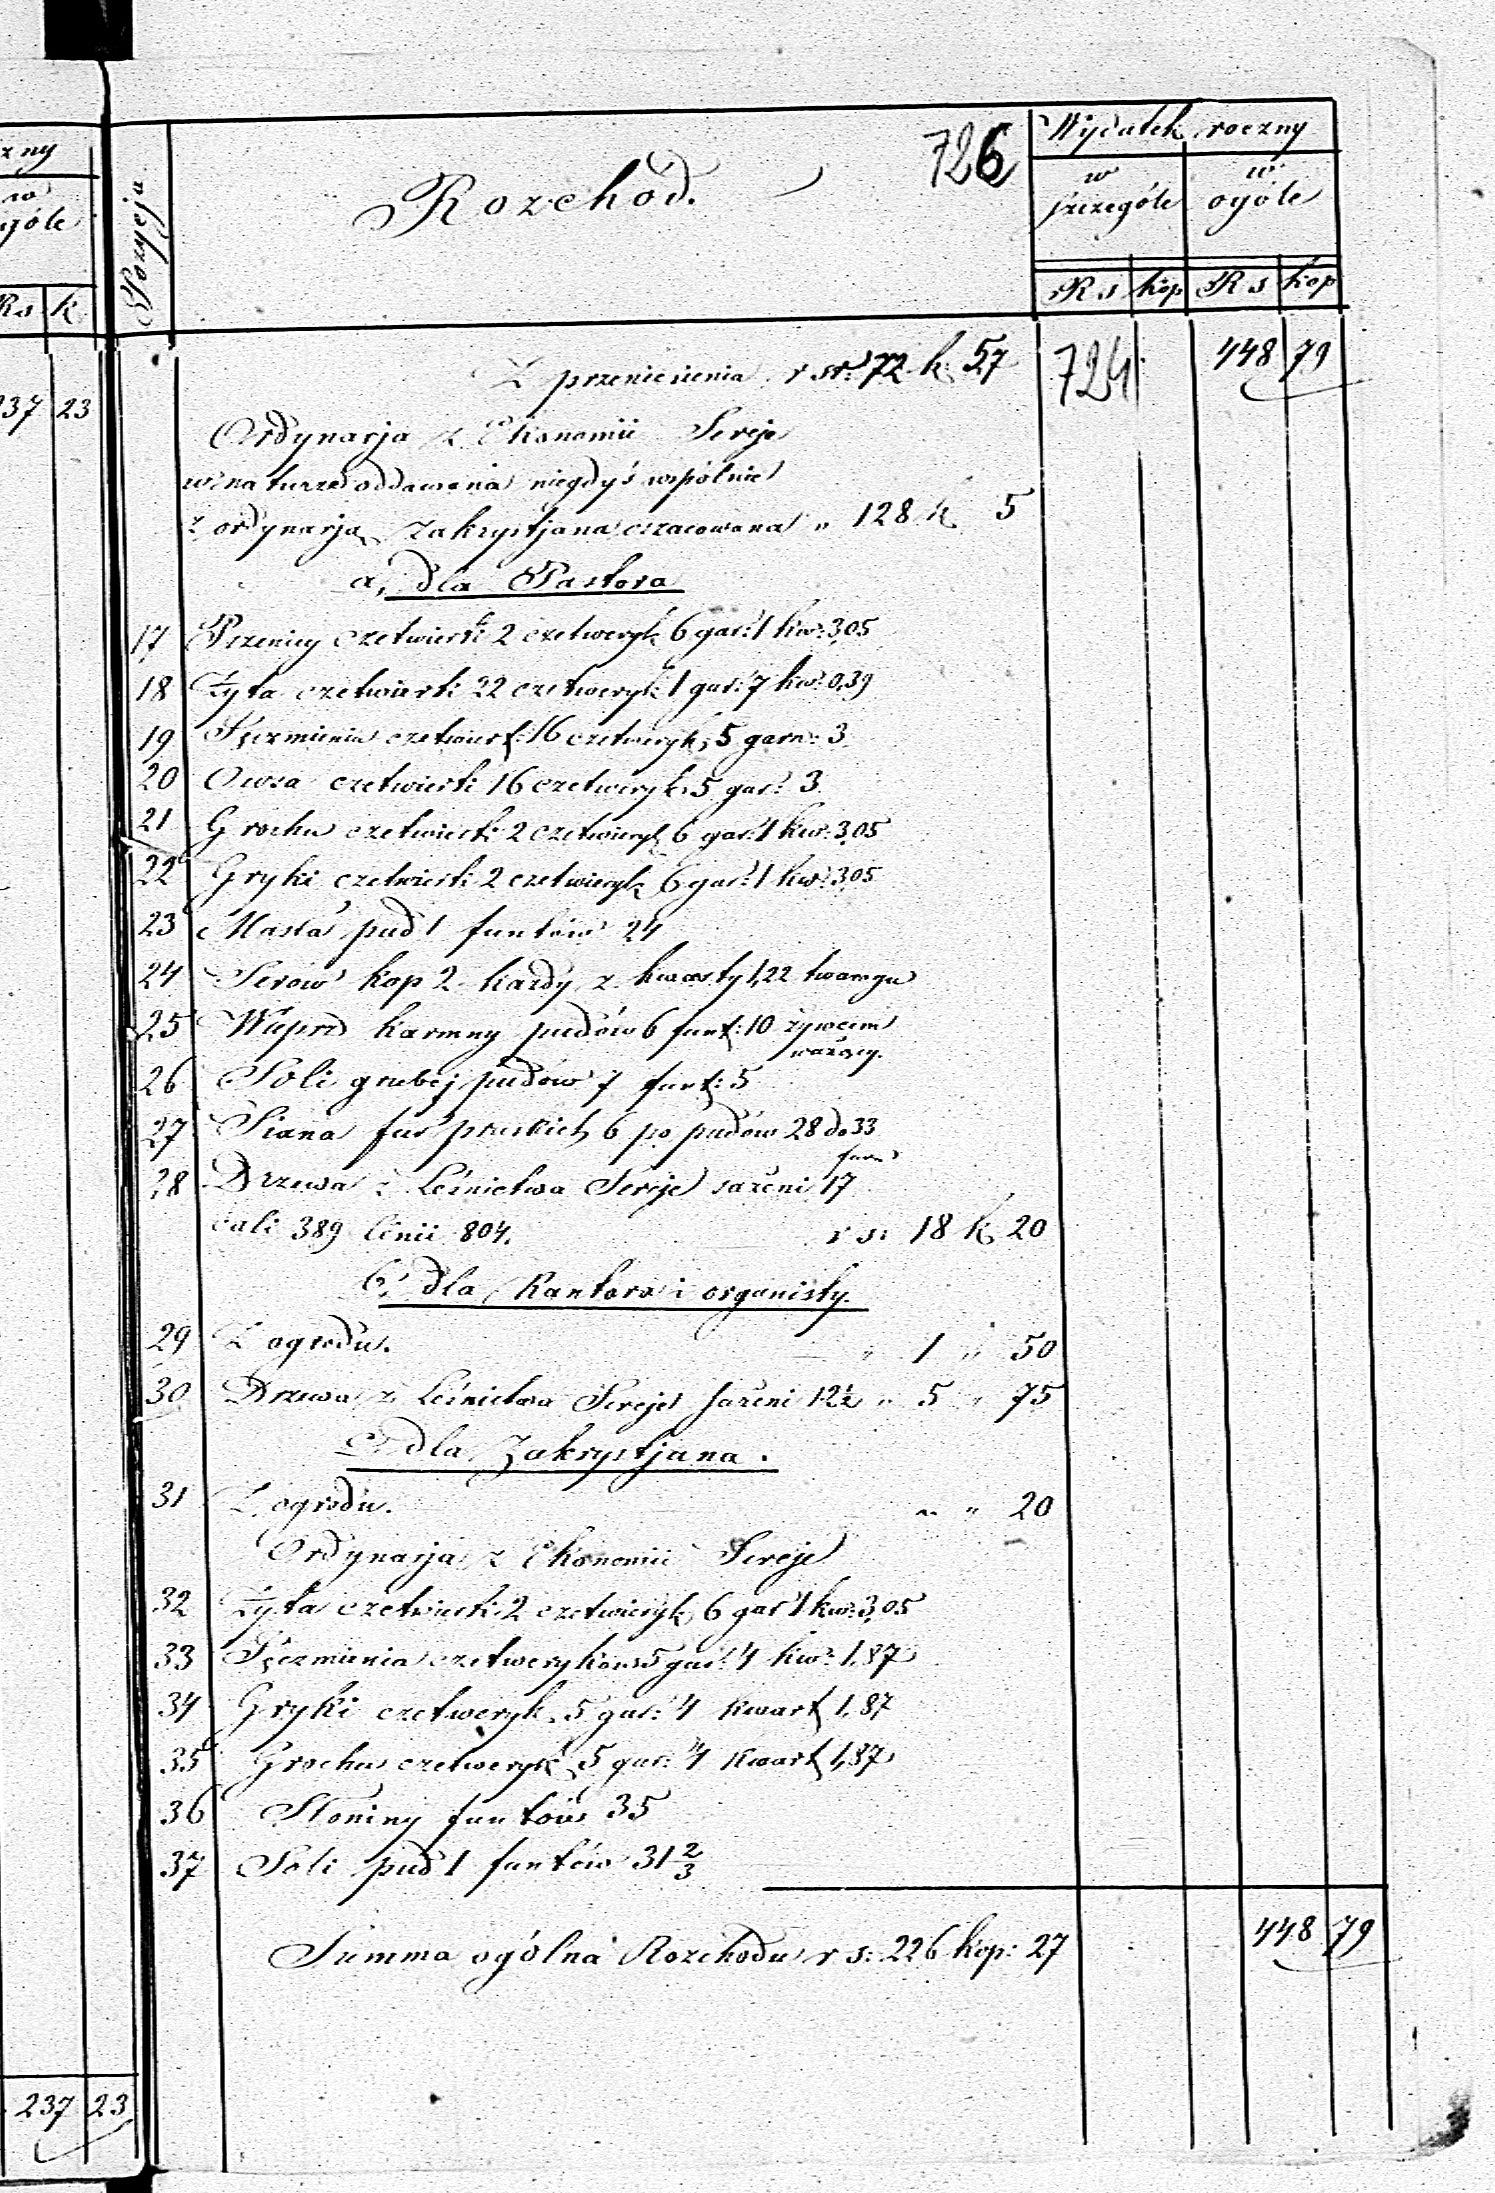 zny
w
ogóle
Rs k
237 23
237 23
Pozycja
Rozchód.
726
Wydatek roczny
w szczególe
w ogóle
Rs kop Rs kop
Z przeniesienia r sr: 72 k 57
724
448 79
Ordynarja z Ekonomii Sereje
w naturze oddawana niegdyś wspólnie
z ordynarją Zakrystjana oszacowana " 128 k 5
a, dla Pastora
17 Pszenicy czetwierti 2 czetweryk 6 gar: 1 kw: 3,05
18 Żyta czetwierti 22 czetweryk 1 gar: 7 kw: 0,39
19 Jęczmienia czetwiert: 16 czetweryk, 5 garn: 3.
20 Owsa czetwierti 16 czetweryk 5 gar: 3.
21 Grochu czetwierti 2 czetwieryk 6 gar: 1 kw: 3,05
22 Gryki czetwierti 2 czetwieryk 6 gar: 1 kw: 3,05
23 Masła pud 1 funtów 24
24 Serów kop 2 każdy z kwarty 1,22 twarogu
25 Wieprz karmny pudów 6 funt: 10 żywcem
ważący.
26 Soli grubej pudów 7 funt: 5
27 Siana fur pruskich 6 po pudów 28 do 33
funt
28 Drzewa z Leśnictwa Sereje sażeni 17
cali 389 linii 804. r s: 18 k 20
b, dla Kantora i organisty.
29 Z ogrodu. " 1 " 50
30 Drzewa z Leśnictwa Sereje sażeni 12½ " 5 " 75
c. dla Zakrystjana.
31 Z ogrodu. " " 20
Ordynarja z Ekonomii Sereje
32 Żyta czetwierti 2 czetwieryk 6 gar 1 kw: 3,05
33 Jęczmienia czetweryków 5 gar: 4 kw: 1,87
34 Gryki czetweryk. 5 gar: 4 kwart 1,87
35 Grochu czetweryk 5 gar: 4 kwart 1,87
36 Słoniny funtów 35
37 Soli pud 1 funtów 31 2/3
Summa ogólna Rozchodu r s: 226 kop: 27
448 79